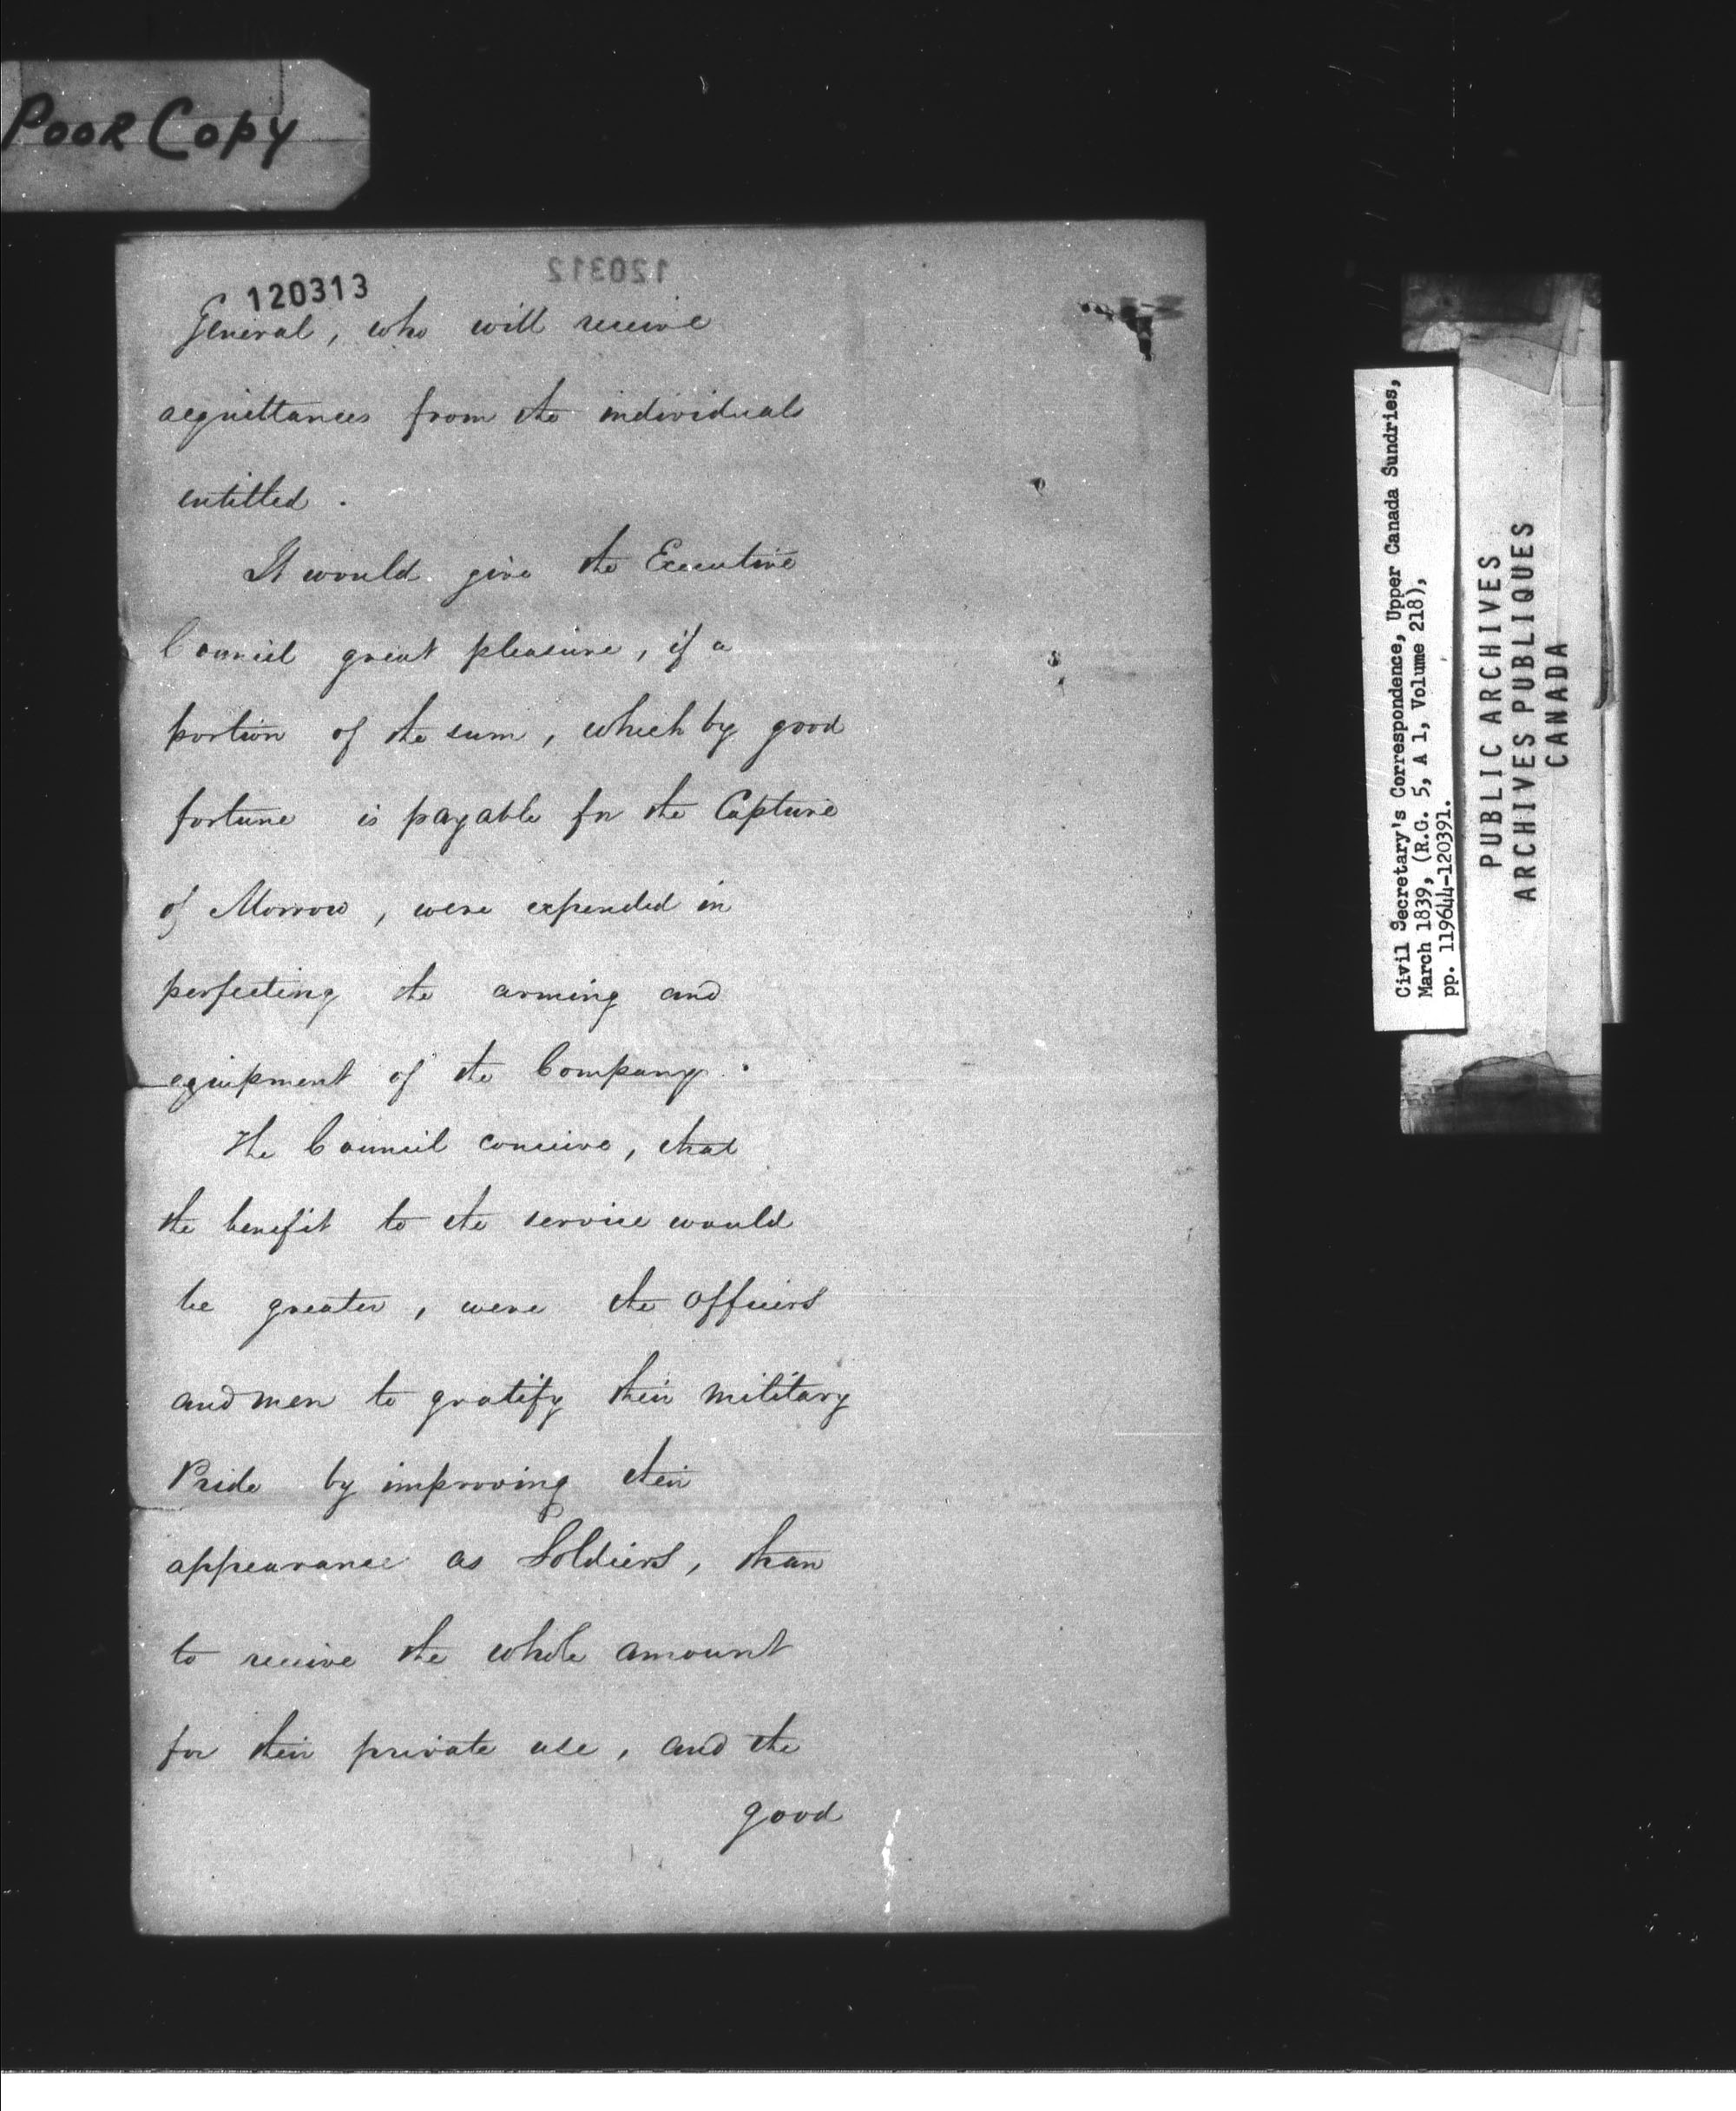 Poor Copy
120313
120312
General, who will receive
acquittances from the individuals
entitled.
It would give the Executive
Council great pleasure, if a
portion of the sum, which by good
fortune is payable for the Capture
of Morrow, were expended in
perfecting the arming and
equipment of the Company.
The Council conceive, that
the benefit to the service would
be greater, were the Officers
and men to gratify their military
Pride by improving their
appearance as Soldiers, than
to receive the whole amount
for their private use, and the
good
Civil Secretary's Correspondence, Upper Canada Sundries,
March 1839, (R.G. 5, A 1, Volume 218),
pp. 119644-120391.
PUBLIC ARCHIVES
ARCHIVES PUBLIQUES
CANADA